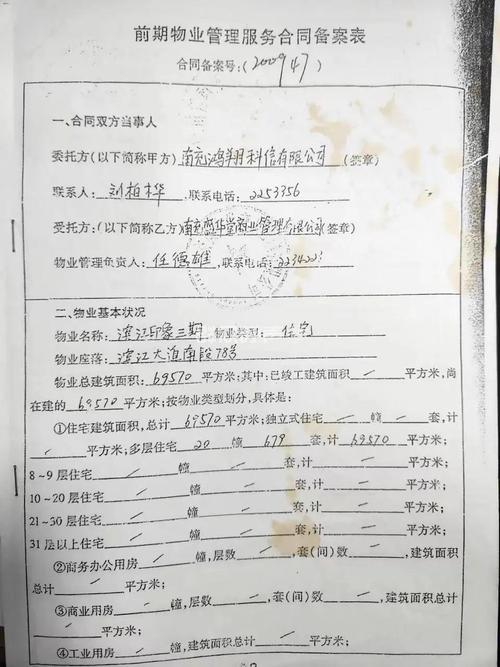 前期物业管理服务合同备案表
合同备案号:(200947)
一、合同双方当事人
委托方(以下简称甲方)南充鸿翔科信有限公司(签章)
联系人:刘柏桦,联系电话:2253356
受托方:(以下简称乙方)南充 物业管理有限公司(签章)
物业管理负责人:任德雄,联系电话:2234223
二、物业基本状况
物业名称:滨江印象三期 物业类型:住宅
物业座落:滨江大道南段78号
物业总建筑面积:69570平方米;其中:已竣工建筑面积 / 平方米,尚
在建的69570平方米;按物业类型划分,具体是:
①住宅建筑面积,总计69570平方米;独立式住宅 / 幢 / 套,计
/ 平方米;多层住宅20幢679套,计69570平方米;
8-9层住宅 / 幢 / 套,计 / 平方米;
10-20层住宅 / 幢 / 套,计 / 平方米;
21-30层住宅 / 幢 / 套,计 / 平方米;
31层以上住宅 / 幢 / 套,计 / 平方米;
②商务办公用房 / 幢,层数 / ,套(间)数 / ,建筑面积
总计 / 平方米;
③商业用房 / 幢,层数 / ,套(间)数 / ,建筑面积总计
/ 平方米;
④工业用房 / 幢,建筑面积总计 / 平方米;